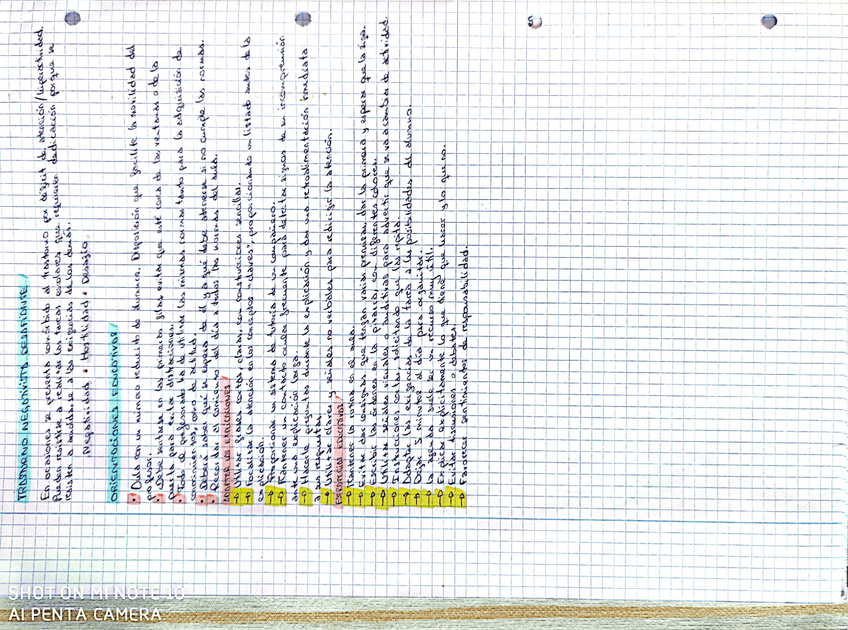 TRASTORNO NEGATIVISTA DESAFIANTE /
En ocasiones se presenta concebido al trastorno por déficit de atención/hiperactividad.
Pueden resistirse a realizar las tareas escolares que requieren dedicación porque se
resisten a amoldarse a las exigencias de los demás.
Negatividad • Hostilidad • Desafío
ORIENTACIONES EDUCATIVAS /
• Aula con un número reducido de alumnos. Disposición que facilite la movilidad del
profesor.
• Debe sentarse en las primeras filas evitar que esté cerca de las ventanas o de la
puerta para evitar distracciones.
• Todo el profesorado ha de utilizar las mismas normas tanto para la adquisición de
conocimientos, como de actitud.
• Deberá saber qué se espera de él y a qué debe atenerse si no cumple las normas.
• Recordar al comienzo del día a todos las normas del aula.
ADAPTAR LAS EXPLICACIONES /
→ Utilizar frases cortas, claras, con construcciones sencillas.
→ Focalizar la atención en los conceptos "claves", proporcionando un listado antes de la
explicación.
→ Proporcionar un sistema de tutoría de un compañero.
→ Mantener un contacto ocular frecuente para detectar signos de su incomprensión
ante una explicación larga.
→ Hacerle preguntas durante la explicación y dar una retroalimentación inmediata
a sus respuestas.
→ Utilizar claves y señales no verbales para redirigir la atención.
ESTRATEGIAS EDUCATIVAS /
→ Mantener la rutina en el aula.
→ Evitar dar consignas que tengan varias premisas, dar la primera y esperar que la siga.
→ Escribir las órdenes en la pizarra con diferentes colores.
→ Utilizar señales visuales o auditivas para advertir que se va a cambiar de actividad.
→ Instrucciones cortas, solicitando que las repita.
→ Adaptar las exigencias de la tarea a las posibilidades del alumno.
→ Dejar 5 minutos al día para organizar.
→ La agenda suele ser un recurso muy útil.
→ Explicar explícitamente lo que tiene que hacer y lo que no.
→ Evitar discusiones o debates.
→ Favorecer sentimientos de responsabilidad.
SHOT ON MI NOTE 10
AI PENTA CAMERA